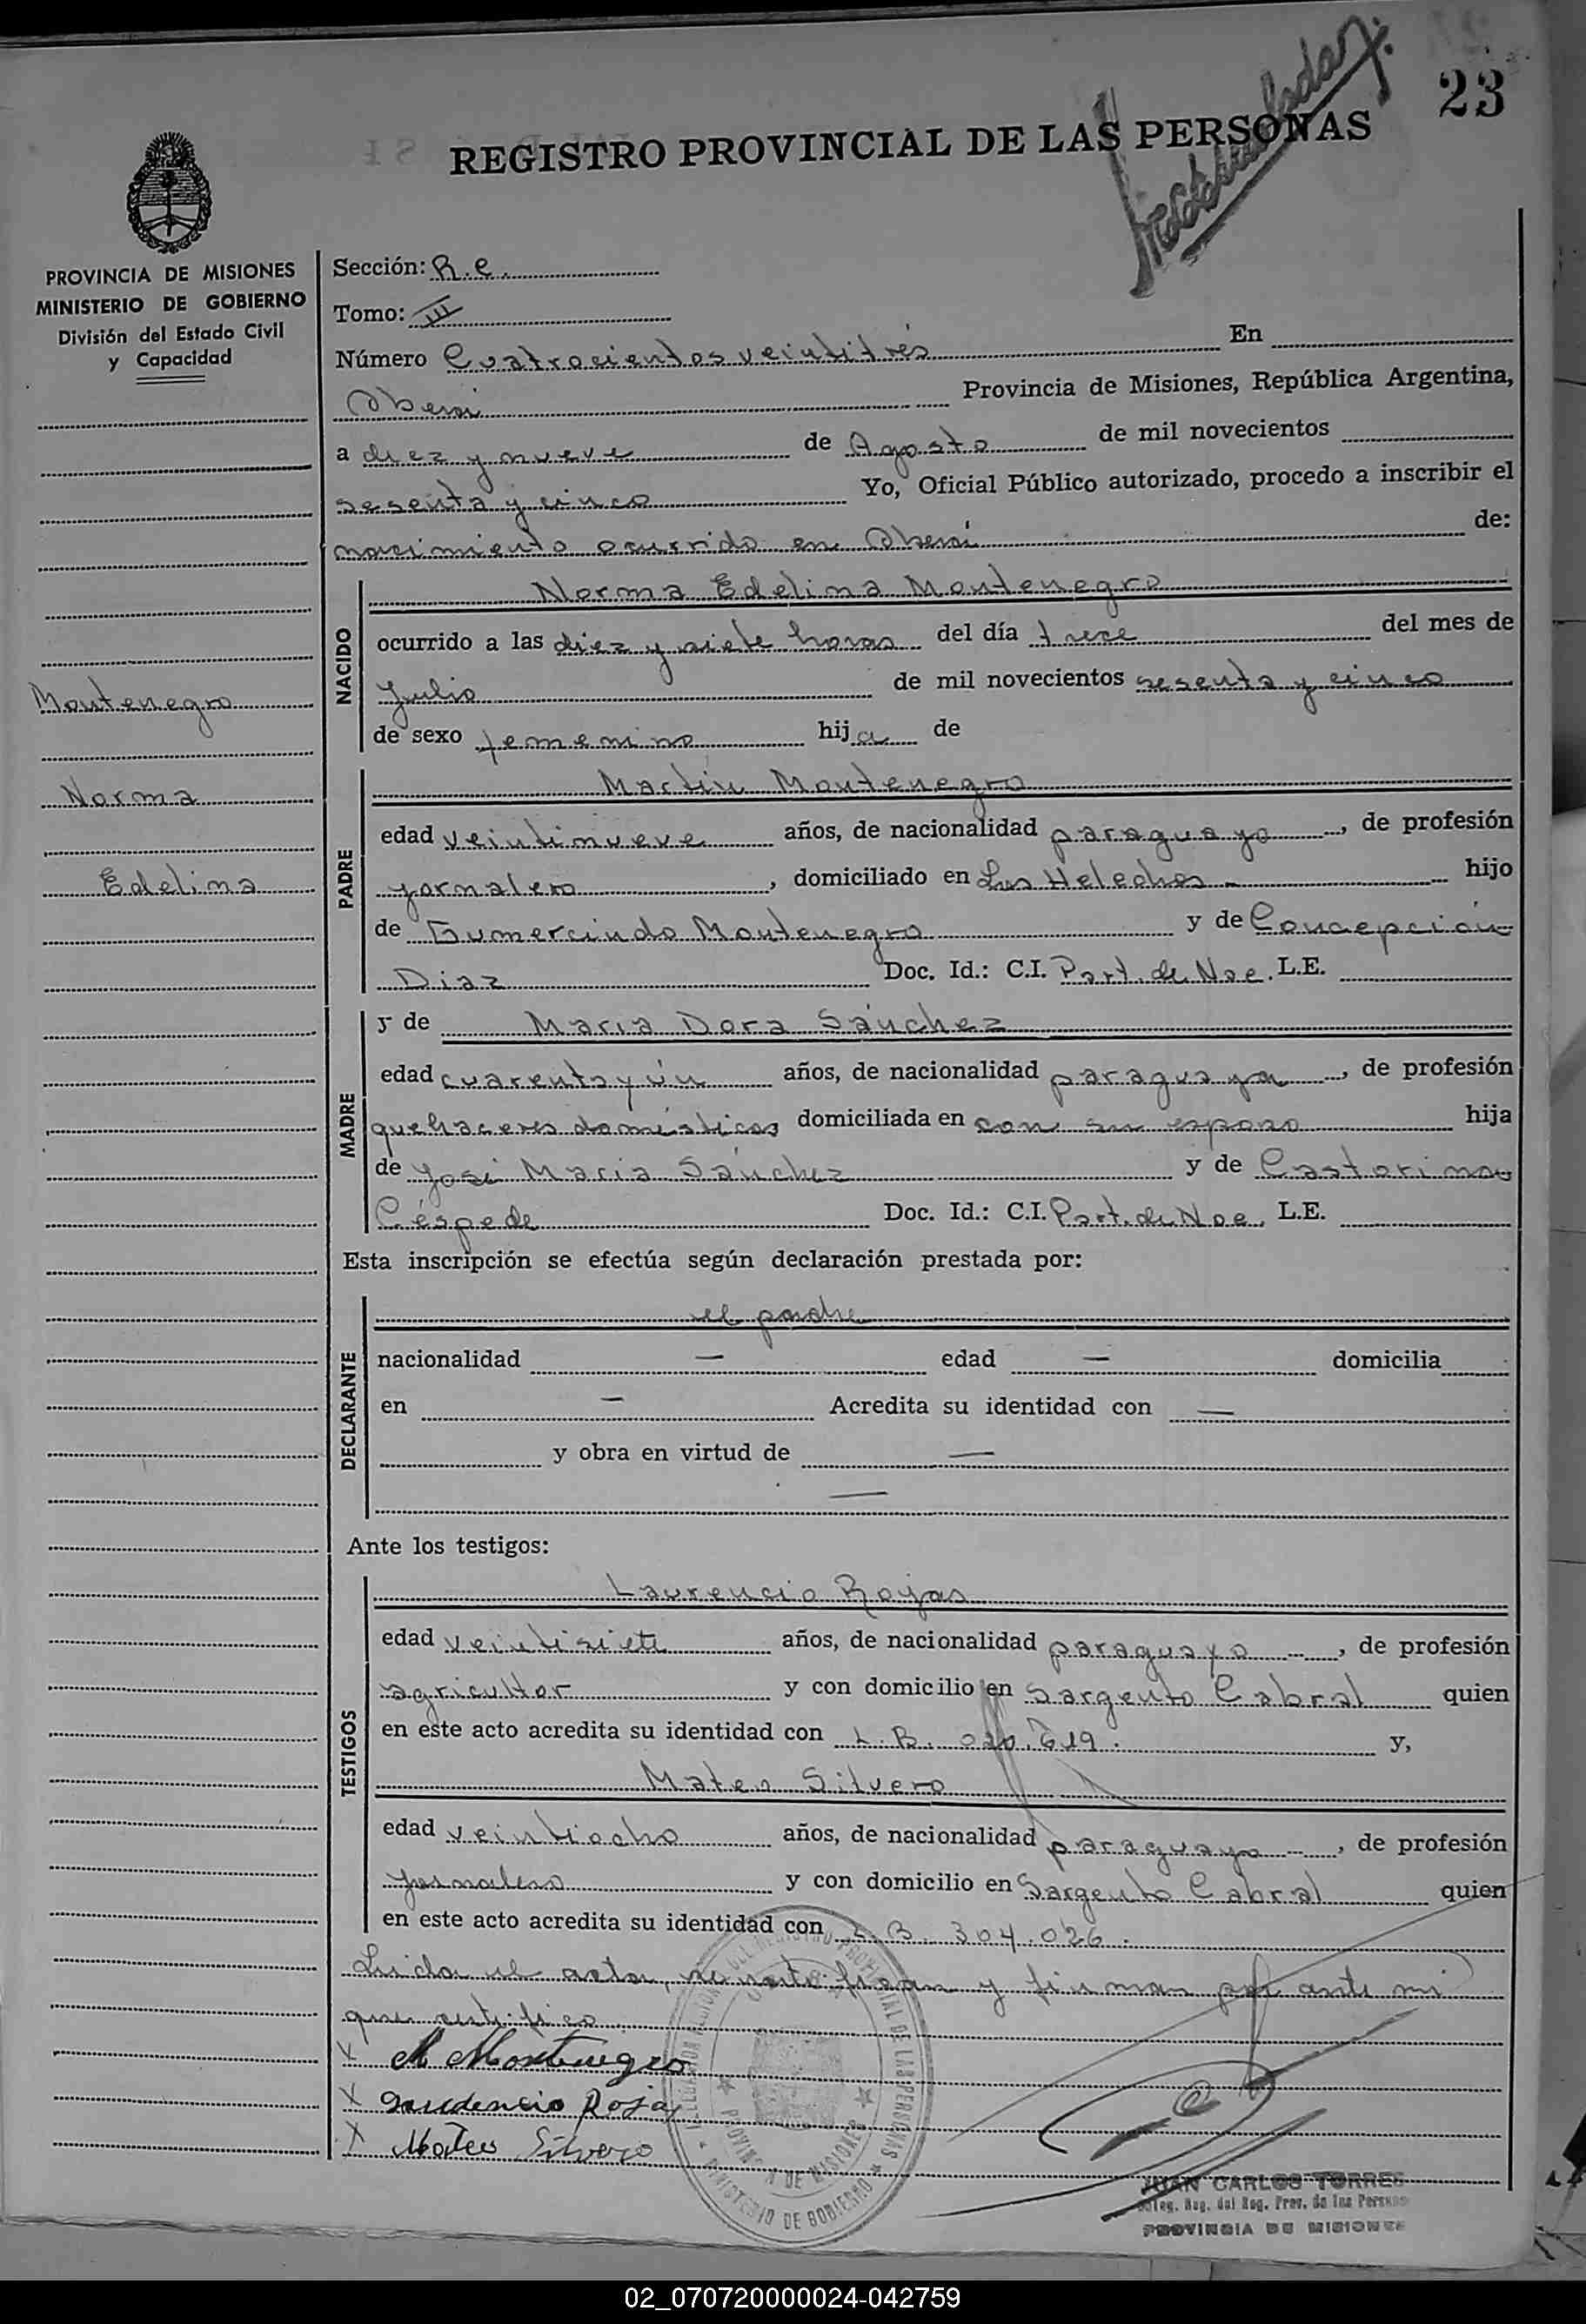 23
REGISTRO PROVINCIAL DE LAS PERSONAS
PROVINCIA DE MISIONES
MINISTERIO DE GOBIERNO
División del Estado Civil
y Capacidad
Montenegro
Norma
Edelina
Sección: R.e.
Tomo: III
Número Cuatrocientos veintitrés En
Oberá Provincia de Misiones, República Argentina,
a diez y nueve de Agosto de mil novecientos
sesenta y cinco Yo, Oficial Público autorizado, procedo a inscribir el
nacimiento ocurrido en Oberá de:
NACIDO
Norma Edelina Montenegro
ocurrido a las diez y siete horas del día trece del mes de
Julio de mil novecientos sesenta y cinco
de sexo femenino hija de
PADRE
Martin Montenegro
edad veintinueve años, de nacionalidad paraguayo, de profesión
jornalero, domiciliado en Los Helechos - hijo
de Gumercindo Montenegro y de Concepción
Diaz Doc. Id.: C.I. Part. de Nac. L.E.
MADRE
y de Maria Dora Sánchez
edad cuarenta y ún años, de nacionalidad paraguaya, de profesión
quehaceres domésticos domiciliada en con su esposo hija
de José Maria Sánchez y de Castorina
Céspede Doc. Id.: C.I. Part. de Nac. L.E.
Esta inscripción se efectúa según declaración prestada por:
DECLARANTE
el padre
nacionalidad — edad — domicilia
en — Acredita su identidad con —
y obra en virtud de —
—
Ante los testigos:
TESTIGOS
Laurencio Rojas
edad veintisiete años, de nacionalidad paraguayo, de profesión
agricultor y con domicilio en Sargento Cabral quien
en este acto acredita su identidad con L.B. y,
Mateo Silvero
edad veintiocho años, de nacionalidad paraguayo, de profesión
jornalero y con domicilio en Sargento Cabral quien
en este acto acredita su identidad con L.B. 304.026.
Leida el acta, se ratifican y firman por ante mi
que certifico.
x M Montenegro
x Rojas
x Mateo Silvero
REGISTRO PROVINCIAL DE LAS PERSONAS
PROVINCIA DE MISIONES
MINISTERIO DE GOBIERNO
JUAN CARLOS TORRES
Deleg. Reg. del Reg. Prov. de las Personas
PROVINCIA DE MISIONES
02_070720000024-042759